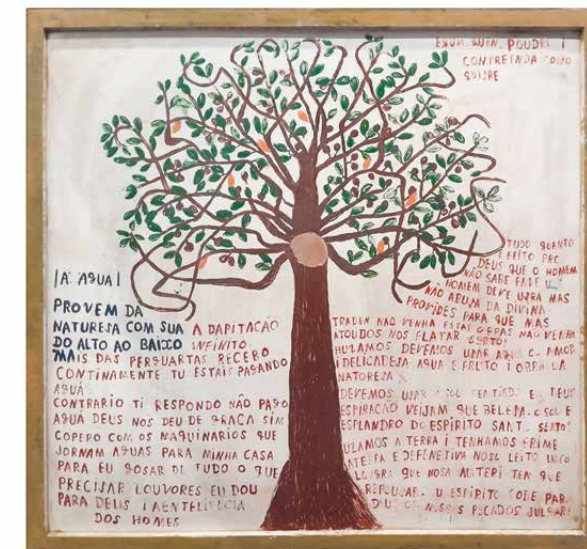 POUDRI I
CONTREINDA COMO
QUIZRE
|A AGUA|
PROVEM DA
NATURESA COM SUA A DAPITACÃO
DO ALTO AO BAIXO INFINITO.
MAIS DAS PERGUARTAS RECEBO
CONTINAMENTE TU ESTAIS PAGANDO
AGUÁ
CONTRARIO TI RESPONDO NÃO PAGO
AGUÁ DEUS NOS DEU DE GRAÇA SIM
COPERO COM OS MAQUINARIOS QUE
JORNAM AGUAS PARA MINHA CASA
PARA EU GOSAR DI TUDO O QUE
PRECISAR LOUVORES EU DOU
PARA DEUS I A
DOS HOMES
TUDO QUANTO
FEITO PRO
DEUS QUE O HOMEM
NÃO SABE FAZE
HOMEM DEVE USRA MAS
NÃO ABUZA DA DIVINA
PROVIDES PARA QUE MAS
NÃO VENHA ESTAS OBRAS NÃO VENHA
ATOUDOS NOS FLATAR
HUZAMOS DEVEMOS USAR AGUA C AMOR
I DELICADEJA AGUA E FRUTO I OBRA LA
NATOREJA
DEVEMOS USAR SOL E TEUS
ESPIRACÃO VEIJAM QUE BELEZA O SOL E
ESPLANDRO DO ESPÍRITO SANT
UZAMOS A TERRA I TENHAMOS FRIME
E DEFENETIVA NOSE LEITO
QUE NOSA MATERI TEN QUE
REPOUSAR. U ESPIPITO SOBE PAR
NOSOS PECADOS JULGAR